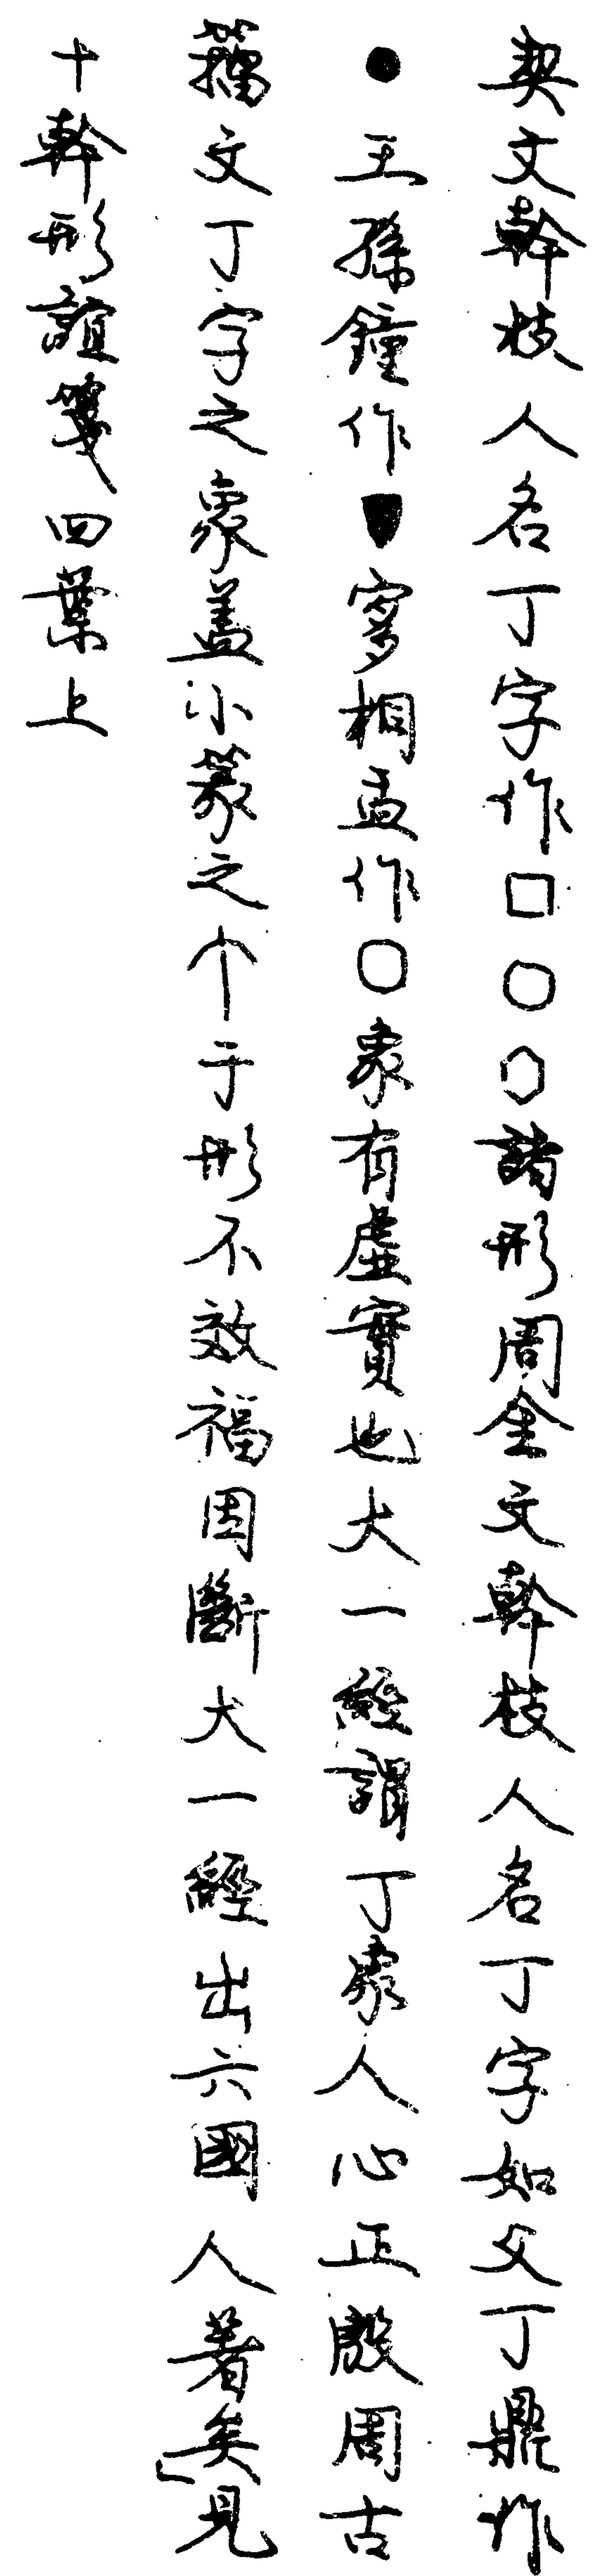 契文幹枝人名丁字作□○○諸形周金文幹枝人名丁字如父丁鼎作
●王孫鐘作▼寥相盂作○象有虛實也大一經謂丁象人心正殷周古
籀文丁字之象蓋小篆之个于形不效福因斷大一經出六國人著矣見
十幹形誼箋四葉上